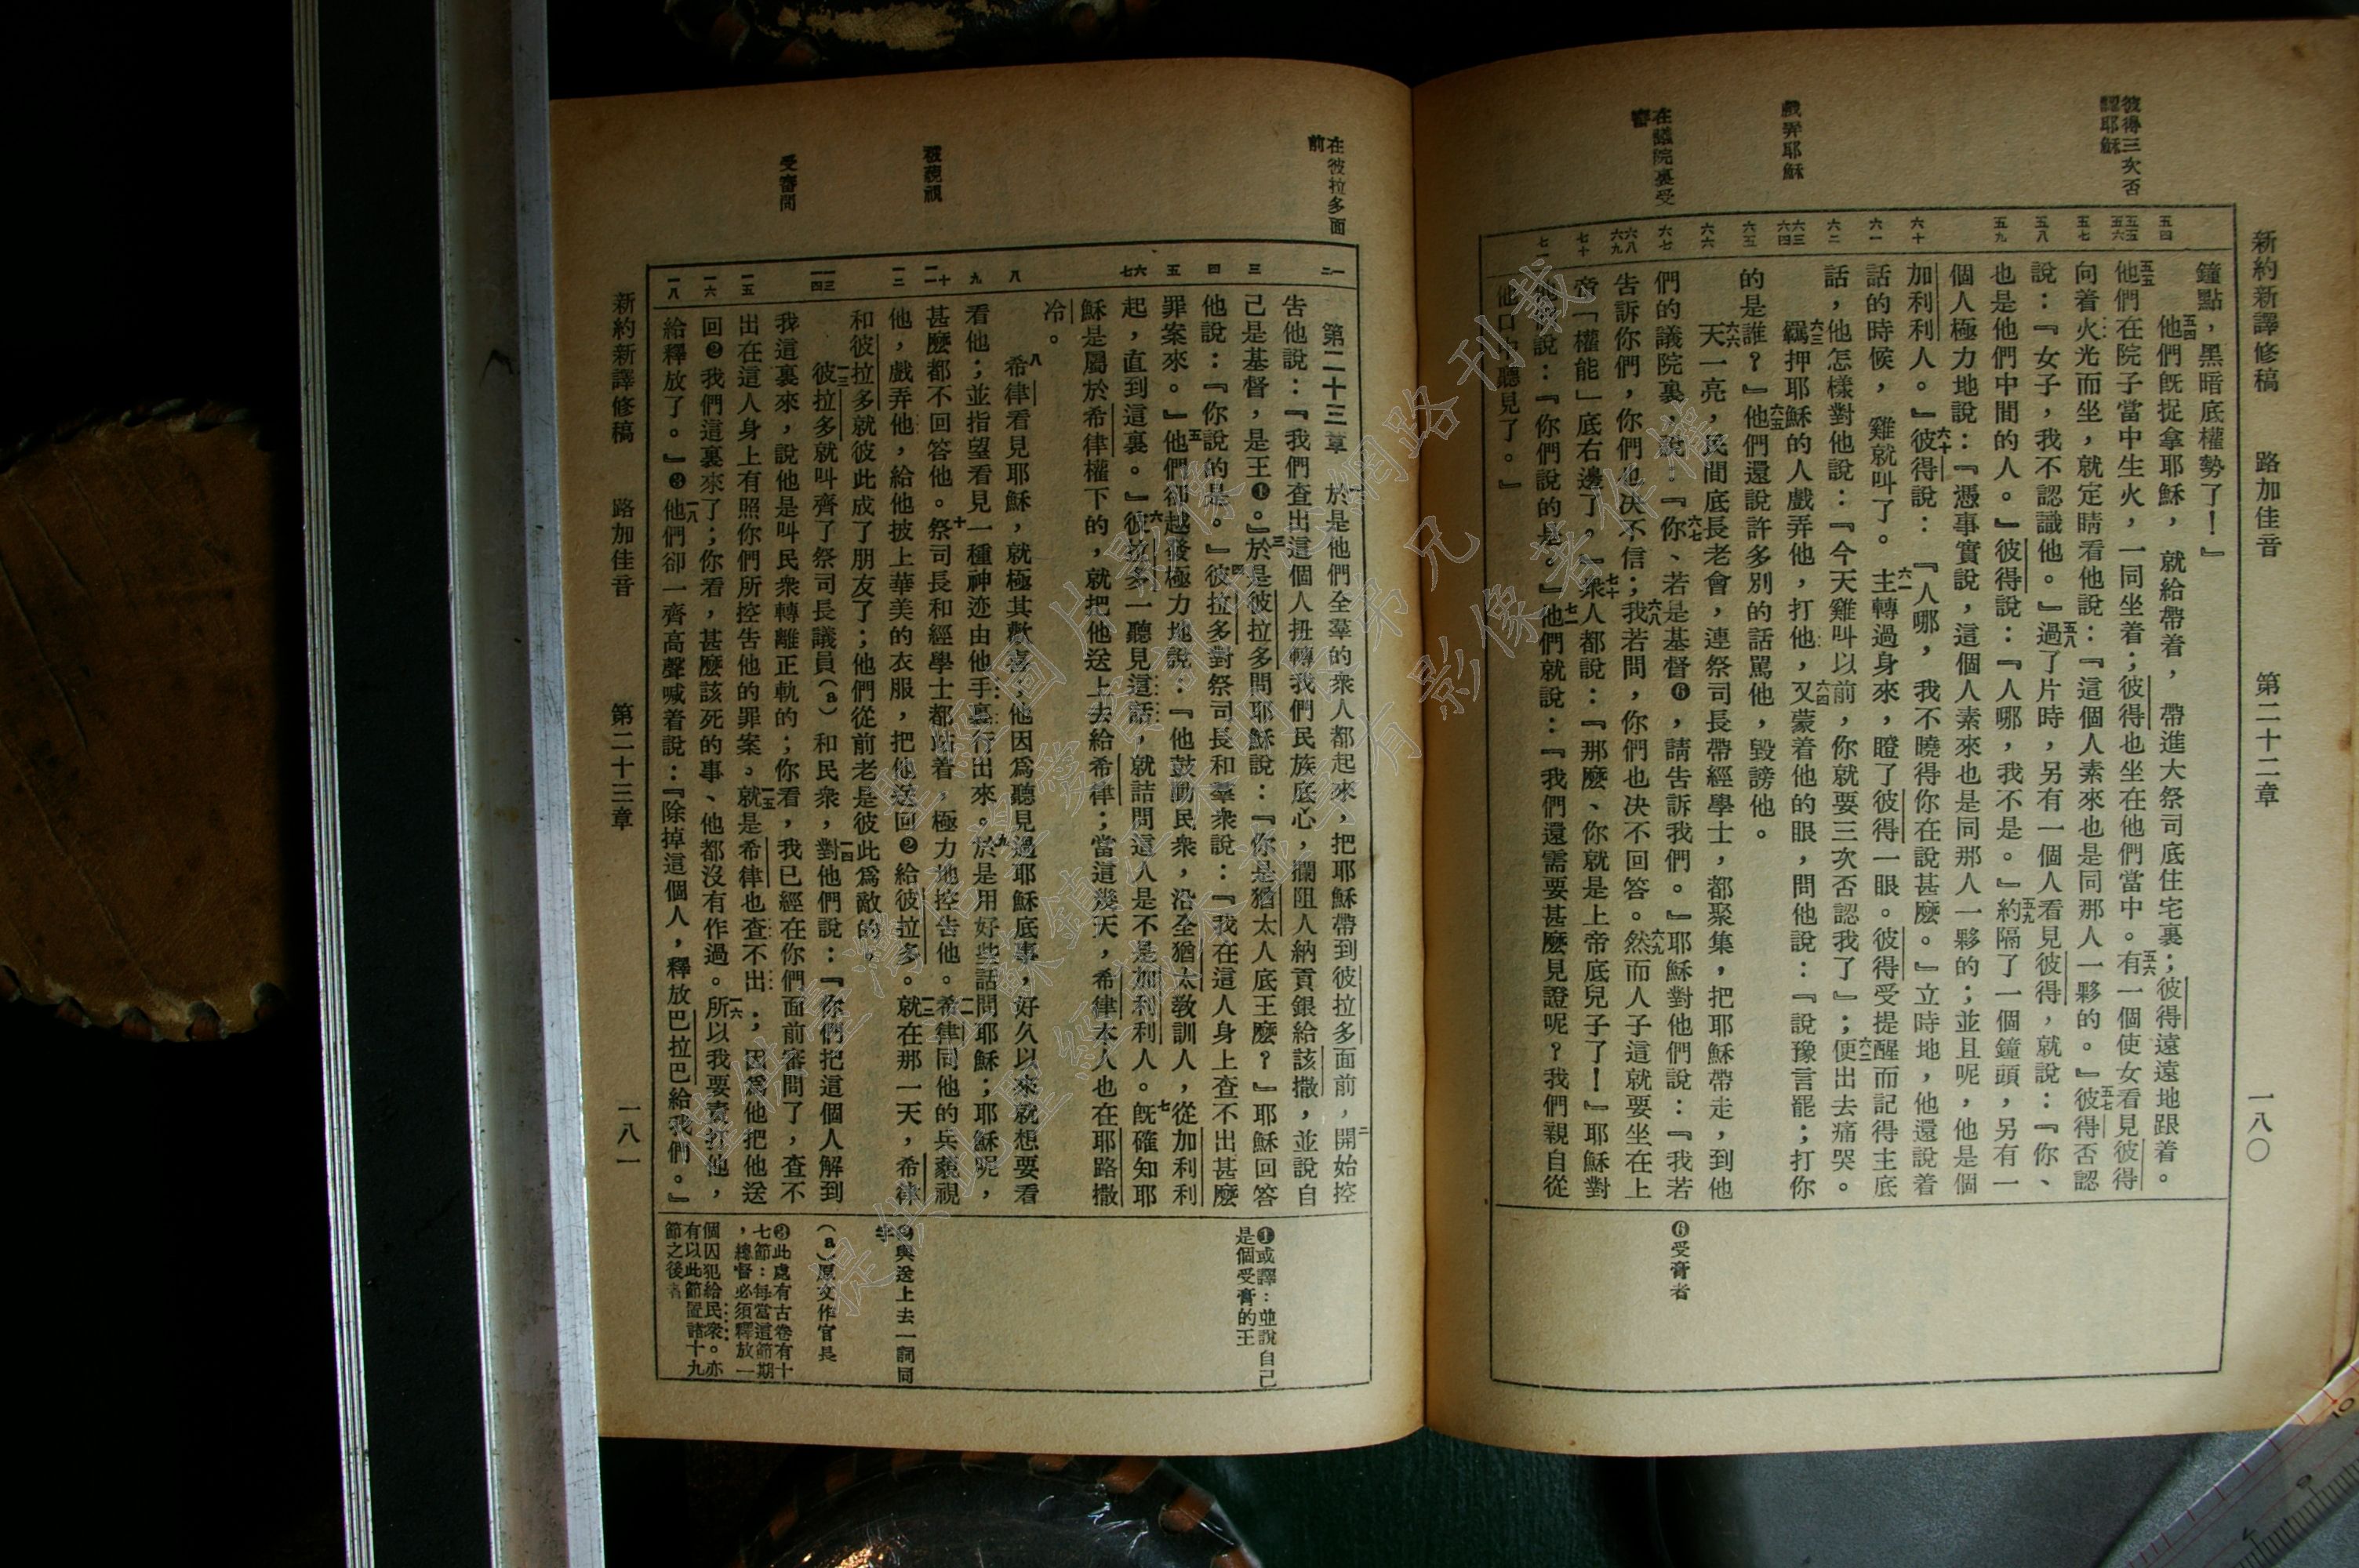 新約新譯修稿　路加佳音　第二十二章　一八〇
彼得三次否
認耶穌
戲弄耶穌
在議院裏受
審
鐘點，黑暗底權勢了！』
五四他們旣捉拿耶穌，就給帶着，帶進大祭司底住宅裏；彼得遠遠地跟着。
五五他們在院子當中生火，一同坐着；彼得也坐在他們當中。五六有一個使女看見彼得
向着火光而坐，就定睛看他說：『這個人素來也是同那人一夥的。』五七彼得否認
說：『女子，我不認識他。』五八過了片時，另有一個人看見彼得，就說：『你、
也是他們中間的人。』彼得說：『人哪，我不是。』五九約隔了一個鐘頭，另有一
個人極力地說：『憑事實說，這個人素來也是同那人一夥的；並且呢，他是個
加利利人。』六十彼得說：『人哪，我不曉得你在說甚麼。』立時地，他還說着
話的時候，雞就叫了。六一主轉過身來，瞪了彼得一眼。彼得受提醒而記得主底
話，他怎樣對他說：『今天雞叫以前，你就要三次否認我了』；六二便出去痛哭。
六三羈押耶穌的人戲弄他，打他，六四又蒙着他的眼，問他說：『說豫言罷；打你
的是誰？』六五他們還說許多別的話罵他，毀謗他。
六六天一亮，民間底長老會，連祭司長帶經學士，都聚集，把耶穌帶走，到他
們的議院裏，說：六七『你、若是基督❻，請告訴我們。』耶穌對他們說：『我若
告訴你們，你們也決不信；六八我若問，你們也決不回答。六九然而人子這就要坐在上
帝「權能」底右邊了。』七十衆人都說：『那麼、你就是上帝底兒子了！』耶穌對
他們說：『你們說的是。』七一他們就說：『我們還需要甚麼見證呢？我們親自從
他口中聽見了。』
❻受膏者
在彼拉多面
前
被藐視
受審問
第二十三章　於是他們全羣的衆人都起來，把耶穌帶到彼拉多面前，二開始控
告他說：『我們查出這個人扭轉我們民族底心，攔阻人納貢銀給該撒，並說自
己是基督，是王❶。』三於是彼拉多問耶穌說：『你是猶太人底王麼？』耶穌回答
他說：『你說的是。』四彼拉多對祭司長和羣衆說：『我在這人身上查不出甚麼
罪案來。』五他們卻越發極力地說：『他鼓動民衆，沿全猶太敎訓人，從加利利
起，直到這裏。』六彼拉多一聽見這話，就詰問這人是不是加利利人。七旣確知耶
穌是屬於希律權下的，就把他送上去給希律；當這幾天，希律本人也在耶路撒
冷。
八希律看見耶穌，就極其歡喜；他因爲聽見過耶穌底事，好久以來就想要看
看他；並指望看見一種神迹由他手裏行出來。九於是用好些話問耶穌；耶穌呢，
甚麼都不回答他。十祭司長和經學士都站着，極力地控告他。一一希律同他的兵藐視
他，戲弄他，給他披上華美的衣服，把他送回❷給彼拉多。一二就在那一天，希律
和彼拉多就彼此成了朋友了；他們從前老是彼此爲敵的。
一三彼拉多就叫齊了祭司長議員（a）和民衆，一四對他們說：『你們把這個人解到
我這裏來，說他是叫民衆轉離正軌的；你看，我已經在你們面前審問了，查不
出在這人身上有照你們所控告他的罪案。一五就是希律也查不出；因爲他把他送
回❷我們這裏來了；你看，甚麼該死的事、他都沒有作過。一六所以我要責打他，
給釋放了。』❸一八他們卻一齊高聲喊着說：『除掉這個人，釋放巴拉巴給我們。』
❶或譯：並說自己
是個受膏的王
❷與送上去一詞同
字
（a）原文作官長
❸此處有古卷有十
七節：每當這節期
，總督必須釋放一
個囚犯給民衆。亦
有以此節置諸十九
節之後者
新約新譯修稿　路加佳音　第二十三章　一八一